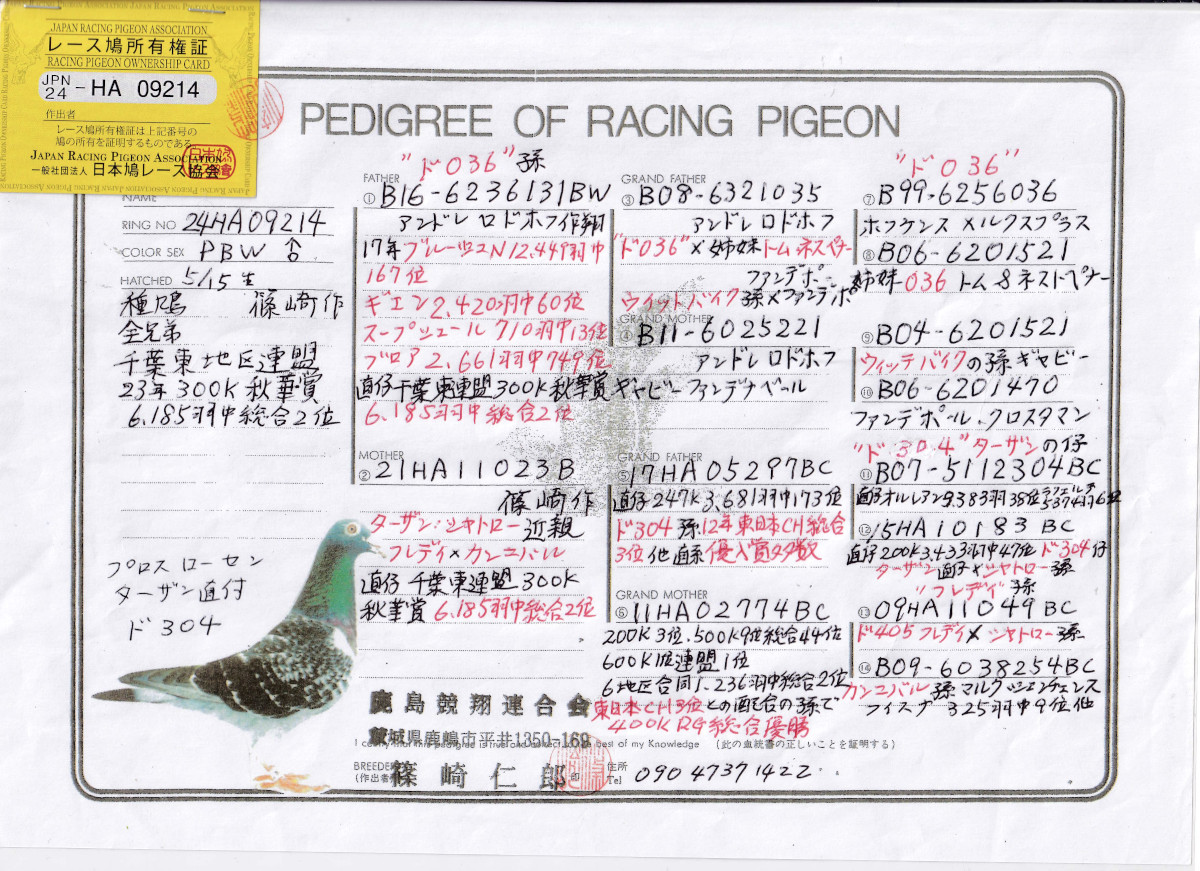 JAPAN RACING PIGEON ASSOCIATION
レース鳩所有権証
RACING PIGEON OWNERSHIP CARD
JPN 24 - HA 09214
作出者
レース鳩所有権証は上記番号の
鳩の所有を証明するものである
JAPAN RACING PIGEON ASSOCIATION
一般社団法人 日本鳩レース協会
PEDIGREE OF RACING PIGEON
NAME
RING NO 24HA09214
COLOR SEX PBW ♂
HATCHED 5/15生
種鳩 篠崎作
全兄弟
千葉東地区連盟
23年300K秋華賞
6.185羽中総合2位
プロス ローセン
ターザン直付
ド304
"ド036"孫
FATHER
① B16-6236131BW
アンドレ ロドホフ作翔
17年ブルージュN12.449羽中
167位
ギエン2,420羽中60位
スープシュール710羽中13位
ブロア2,661羽中749位
直仔千葉東連盟300K秋華賞
6.185羽中総合2位
MOTHER
② 21HA11023B
篠崎作
ターザン:シャトロー近親
フレディ×カンニバル
直仔千葉東連盟300K
秋華賞6.185羽中総合2位
GRAND FATHER
③ B08-6321035
アンドレロドホフ
"ド036"×姉妹トムネスイター
ファンデポール
ウィットバイク孫×ファンデポ
GRAND MOTHER
④ B11-6025221
アンドレロドホフ
ギャビーファンデナベール
GRAND FATHER
⑤ 17HA05297BC
直仔247K3,681羽中173位
ド304孫12年東日本CH総合
3位他直系優入賞多数
GRAND MOTHER
⑥ 11HA02774BC
200K3位.500K9位総合44位
600K1位連盟1位
6地区合同1.236羽中総合2位
東日本CH3位との配合の孫で
400KRG総合優勝
"ド036"
⑦ B99-6256036
ホフケンス メルクスプラス
⑧ B06-6201521
姉妹036トム&ネストペナー
⑨ B04-6201521
ウィッテバイクの孫ギャビー
⑩ B06-6201470
ファンデポール.クロスタマン
"ド304"ターザンの仔
⑪ B07-5112304BC
直仔オルレアン9.383羽38位
⑫ 15HA10183BC
直仔200K3.433羽中47位ド304仔
ターザン直仔×シャトロー孫
"フレディ"孫
⑬ 09HA11049BC
ド405フレディ×シャトロー孫
⑭ B09-6038254BC
カンニバル孫マルク
325羽中9位他
鹿島競翔連合会
茨城県鹿嶋市平井1350-169
I certify that this pedigree is true and correct to the best of my Knowledge (此の血統書の正しいことを証明する)
BREEDER
(作出者)
篠崎仁郎 印
住所
Tel 090 4737 1422